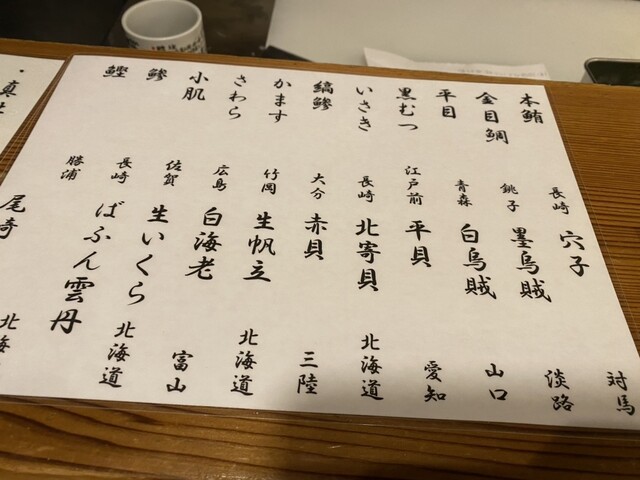 本鮪 長崎 穴子 対馬
金目鯛 銚子 墨烏賊 淡路
平目 青森 白烏賊 山口
黒むつ 江戸前 平貝 愛知
いさき 長崎 北寄貝 北海道
縞鯵 大分 赤貝 三陸
かます 竹岡 生帆立 北海道
さわら 広島 白海老 富山
小肌 佐賀 生いくら 北海道
鯵 長崎 ばふん雲丹
鰹 勝浦
・真
北海